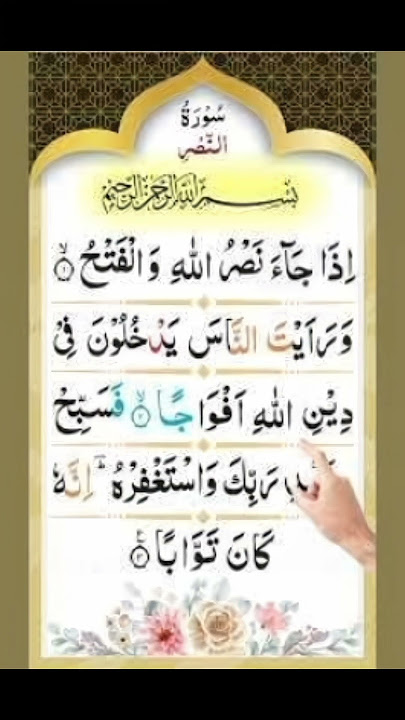 سُوْرَةُ
النَّصْرِ
بِسْمِ اللّٰهِ الرَّحْمٰنِ الرَّحِيْمِ
اِذَا جَآءَ نَصْرُ اللّٰهِ وَ الْفَتْحُ ۙ﴿۱﴾
وَ رَاَيْتَ النَّاسَ يَدْخُلُوْنَ فِيْ
دِيْنِ اللّٰهِ اَفْوَاجًا ۙ﴿۲﴾ فَسَبِّحْ
رَبِّكَ وَاسْتَغْفِرْهُ ؔ اِنَّهٗ
كَانَ تَوَّابًا ﴿۳﴾